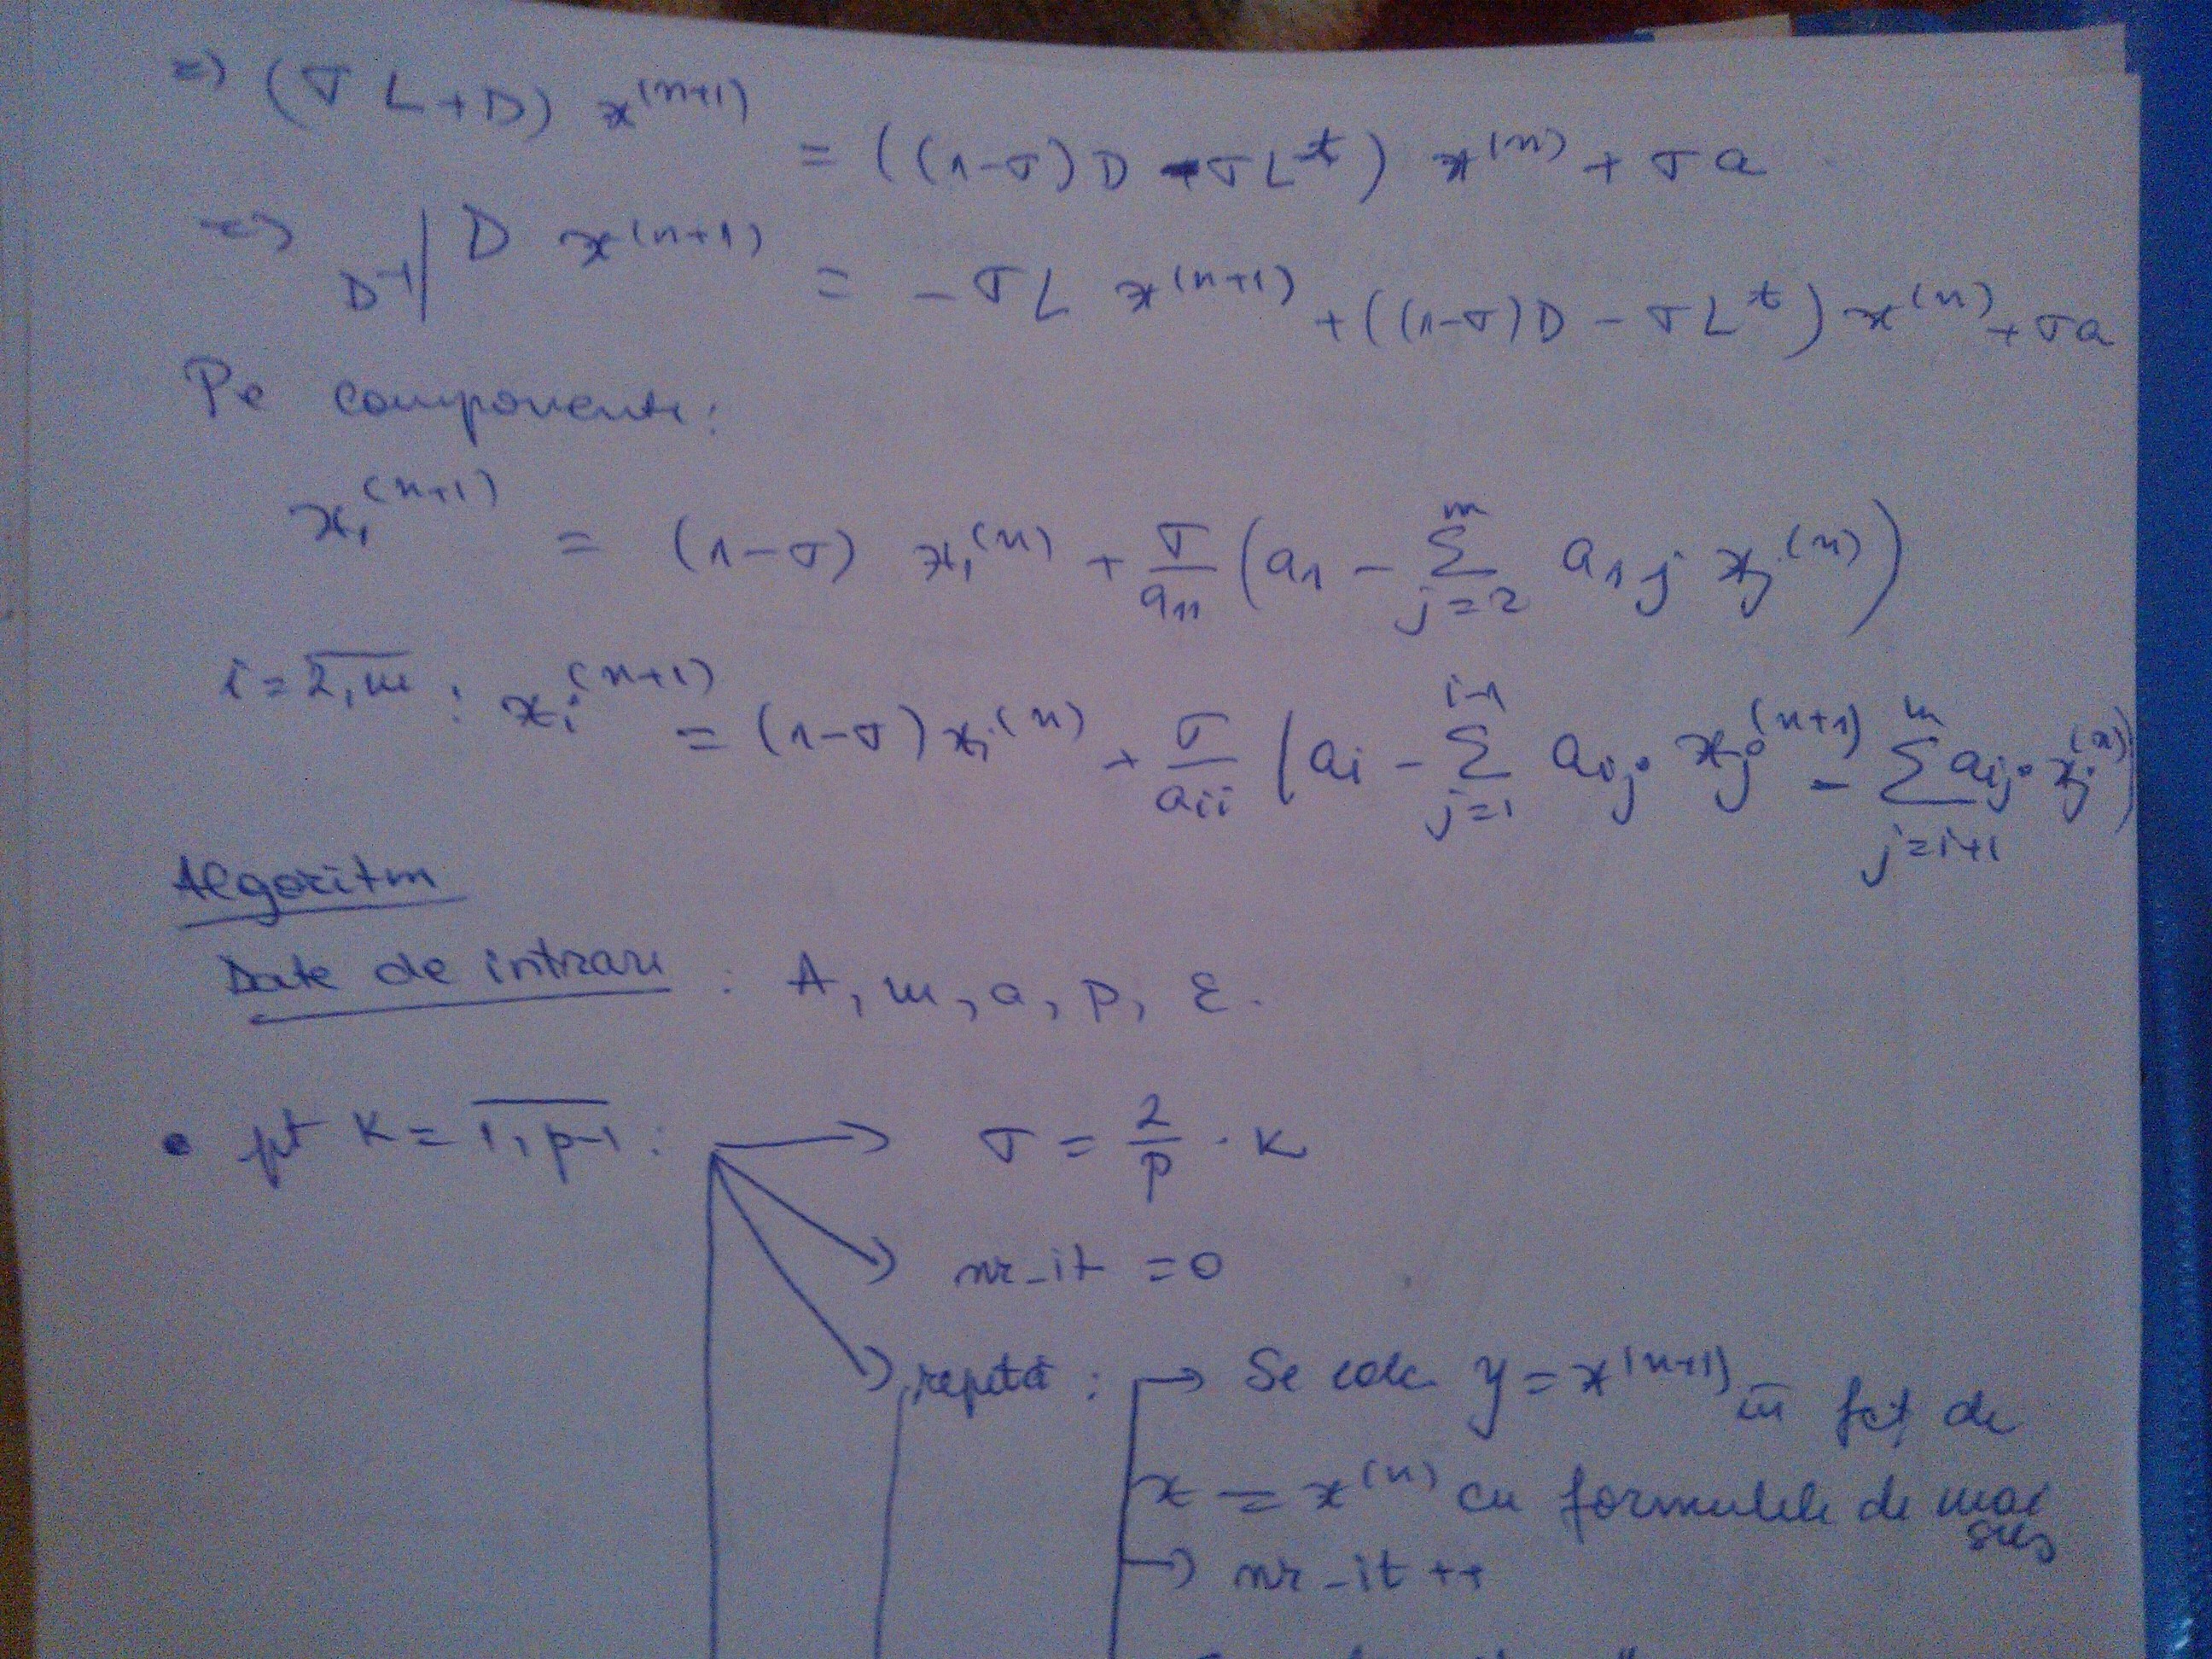 => (σL+D) x^(n+1) = ((1-σ)D - σL^t) x^(n) + σa
=> D^-1 | D x^(n+1) = -σL x^(n+1) + ((1-σ)D - σL^t) x^(n) + σa
Pe componente:
x₁^(n+1) = (1-σ) x₁^(n) + σ/a₁₁ (a₁ - Σ_{j=2}^{m} a₁j xj^(n))
i = 2,m : xi^(n+1) = (1-σ) xi^(n) + σ/aii (ai - Σ_{j=1}^{i-1} aij · xj^(n+1) - Σ_{j=i+1}^{m} aij · xj^(n))
Algoritm
Date de intrare : A, m, a, p, ε.
• pt k = 1, p-1 : → σ = 2/p · k
→ nr_it = 0
→ repetă : → Se calc y = x^(n+1) în fct de
x = x^(n) cu formulele de mai
sus
→ nr_it ++